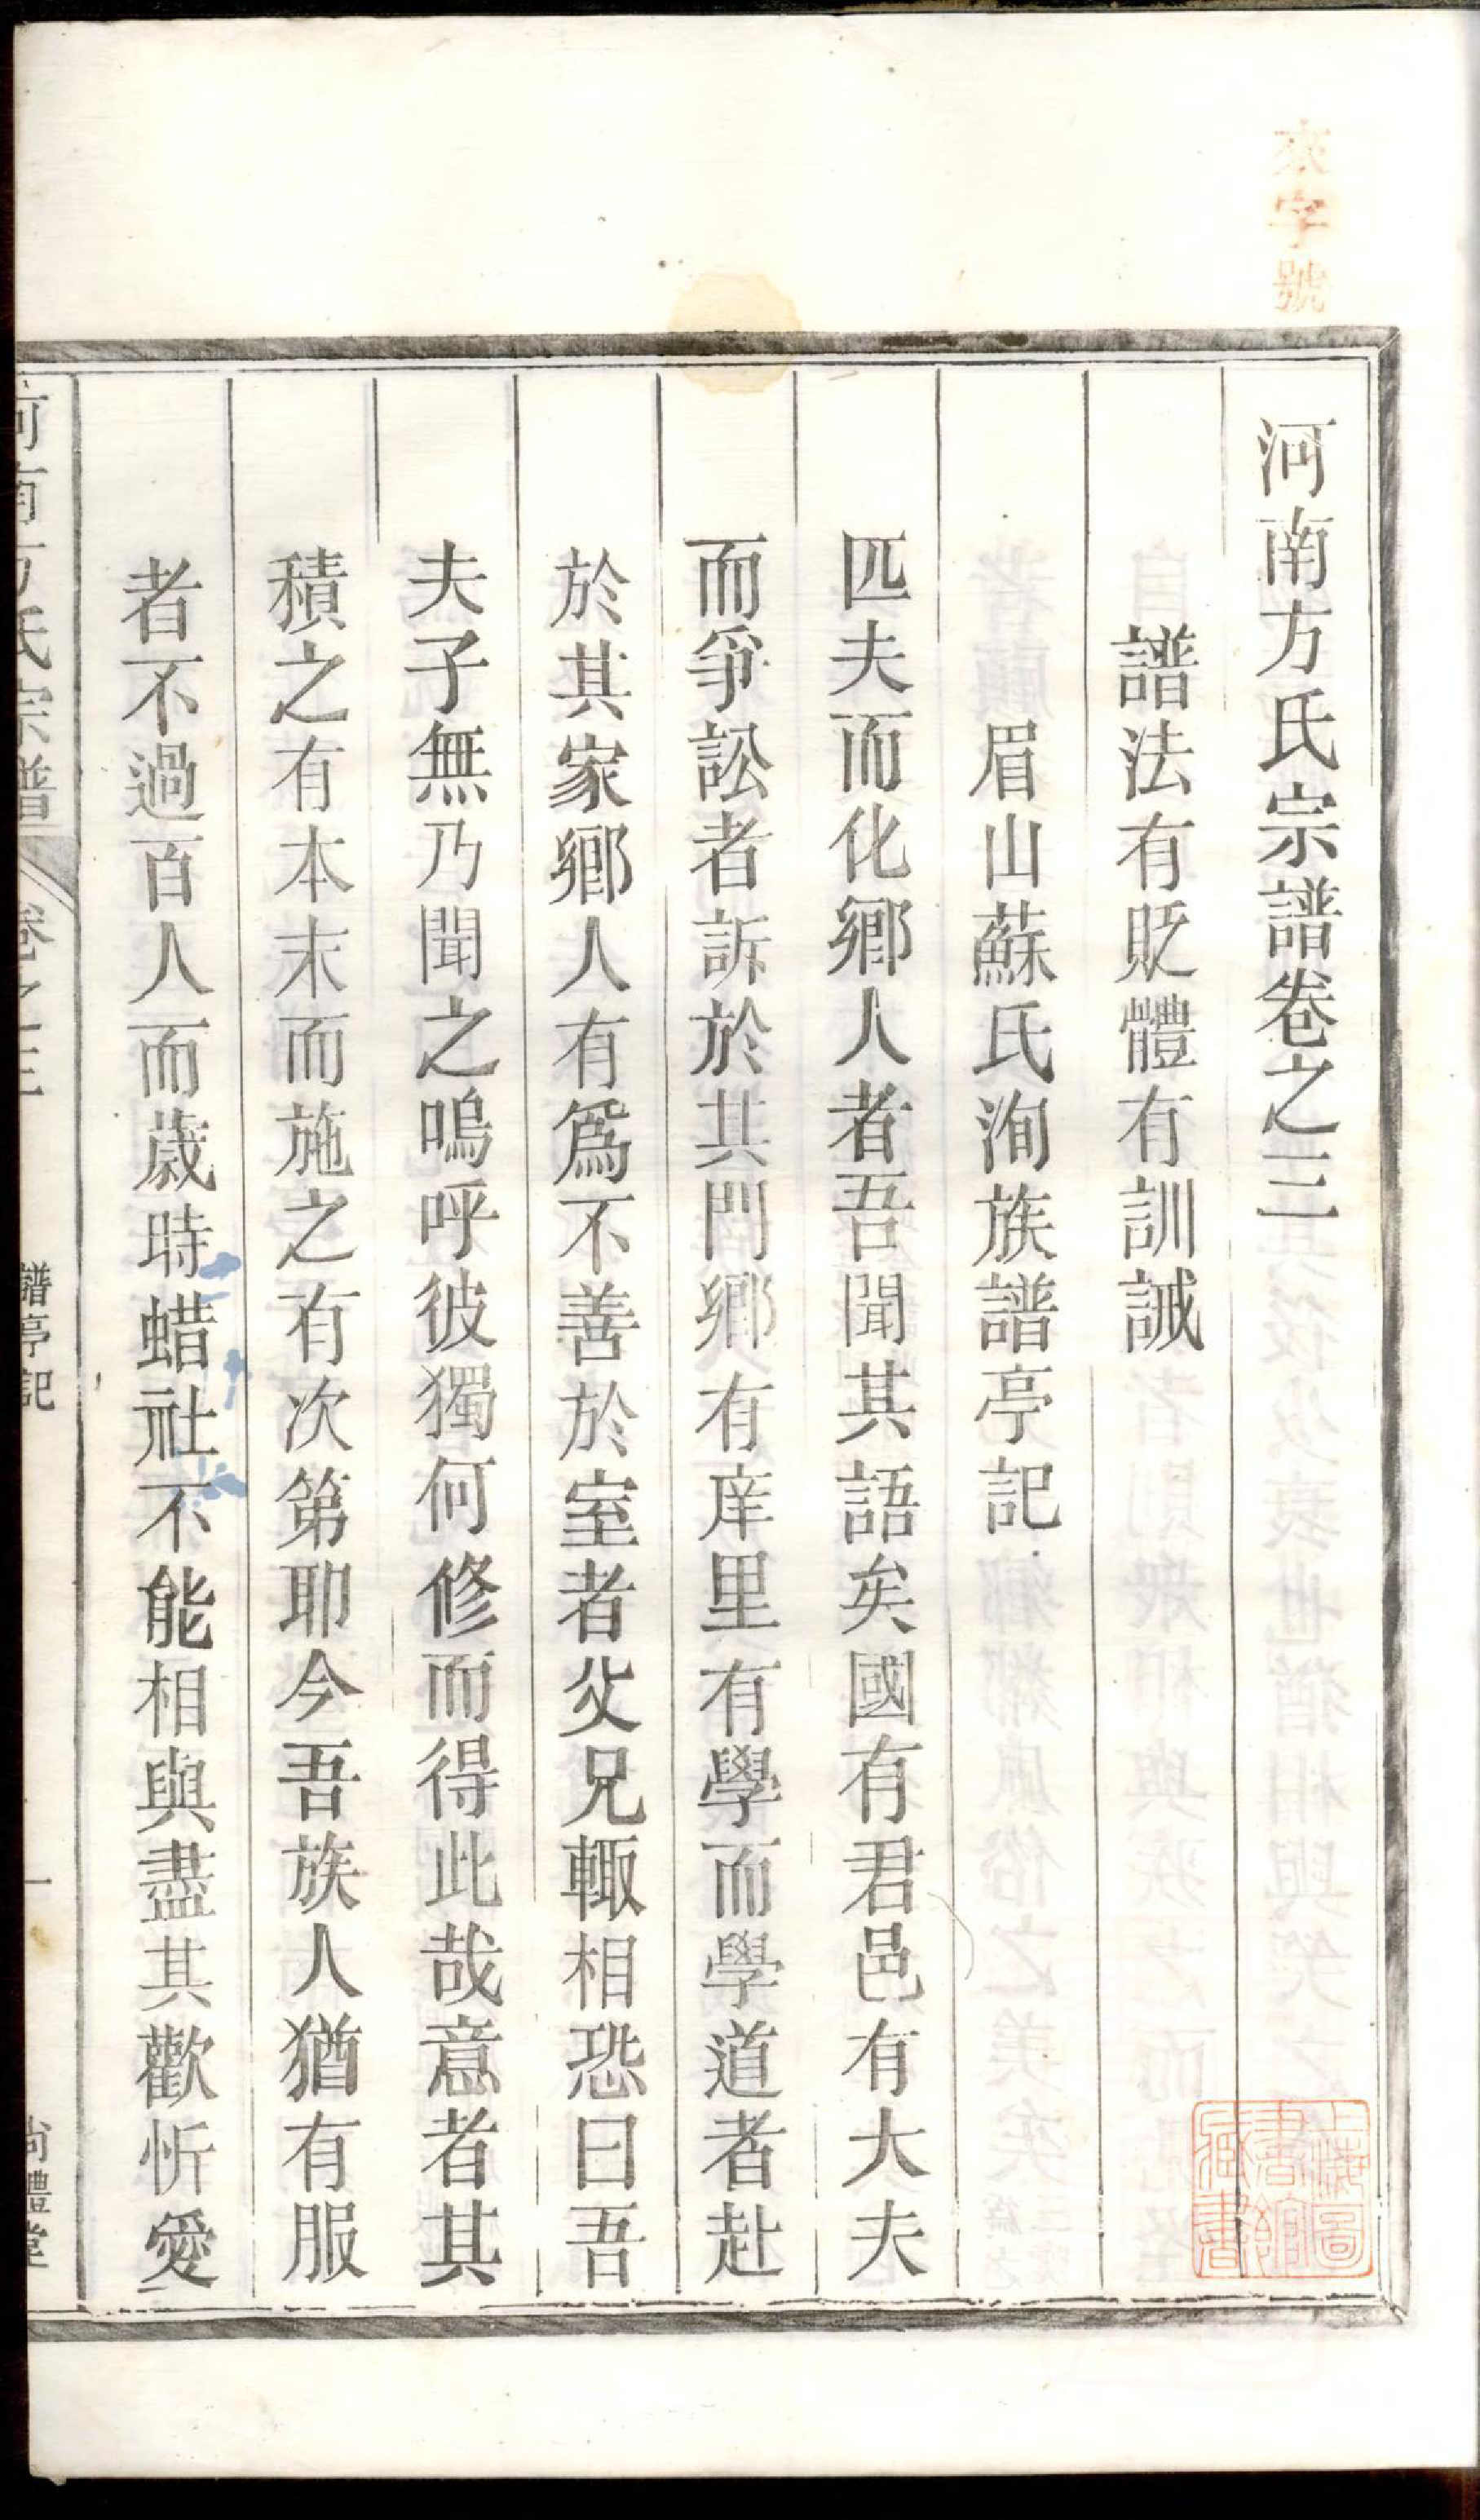 來字號
河南方氏宗譜卷之三
譜法有貶體有訓誡
眉山蘇氏洵族譜亭記
匹夫而化鄉人者吾聞其語矣國有君邑有大夫
而爭訟者訴於其門鄉有庠里有學而學道者赴
於其家鄉人有爲不善於室者父兄輙相恐曰吾
夫子無乃聞之嗚呼彼獨何修而得此哉意者其
積之有本末而施之有次第耶今吾族人猶有服
者不過百人而歲時蜡社不能相與盡其歡忻愛
河南方氏宗譜
卷之三
譜亭記
一
尚禮堂
上海圖書館藏書